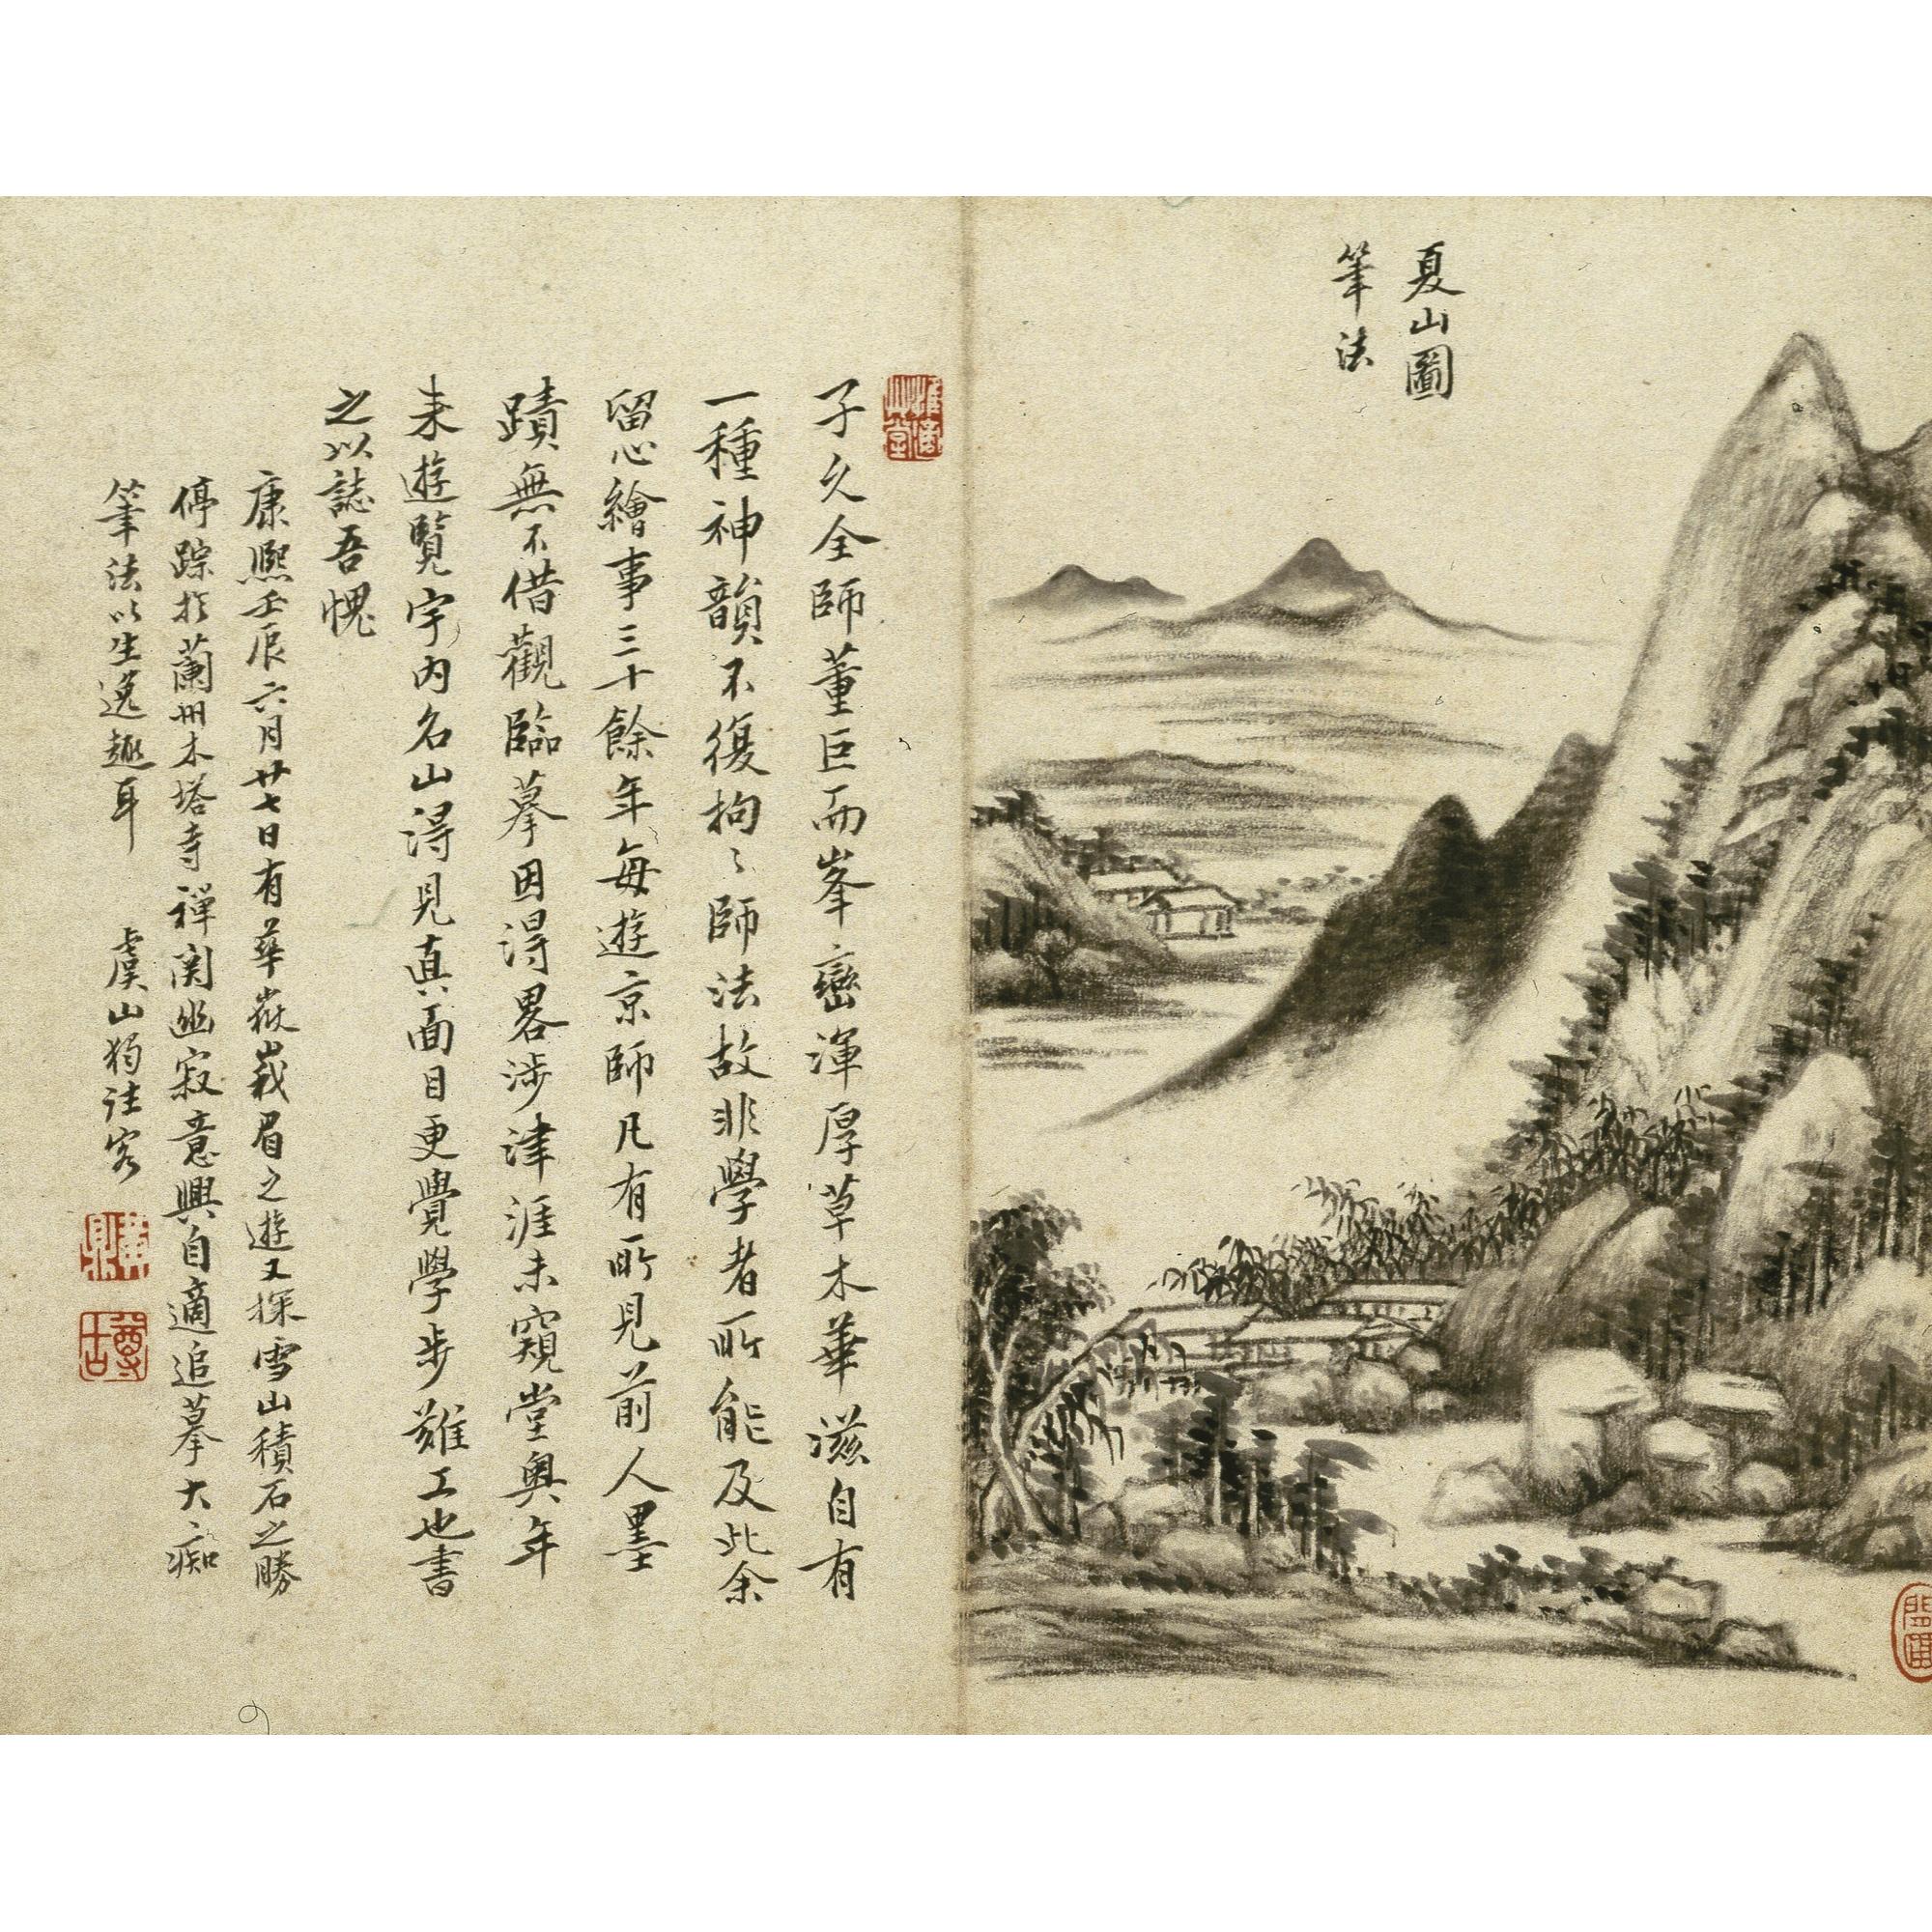 夏山圖
筆法
子久全師董巨而峯巒渾厚草木華滋自有
一種神韻不復拘〻師法故非學者所能及此余
留心繪事三十餘年每遊京師凡有所見前人墨
蹟無不借觀臨摹因得畧涉津涯未窺堂奧年
来遊覽宇內名山得見真面目更覺學步難工也書
之以誌吾愧
康熙壬辰六月廿七日有華嶽峩眉之遊又探雪山積石之勝
停踪於蘭州木塔寺禅関幽寂意興自適追摹大痴
筆法以生逸趣耳 虞山獨往客
黃鼎
尊古